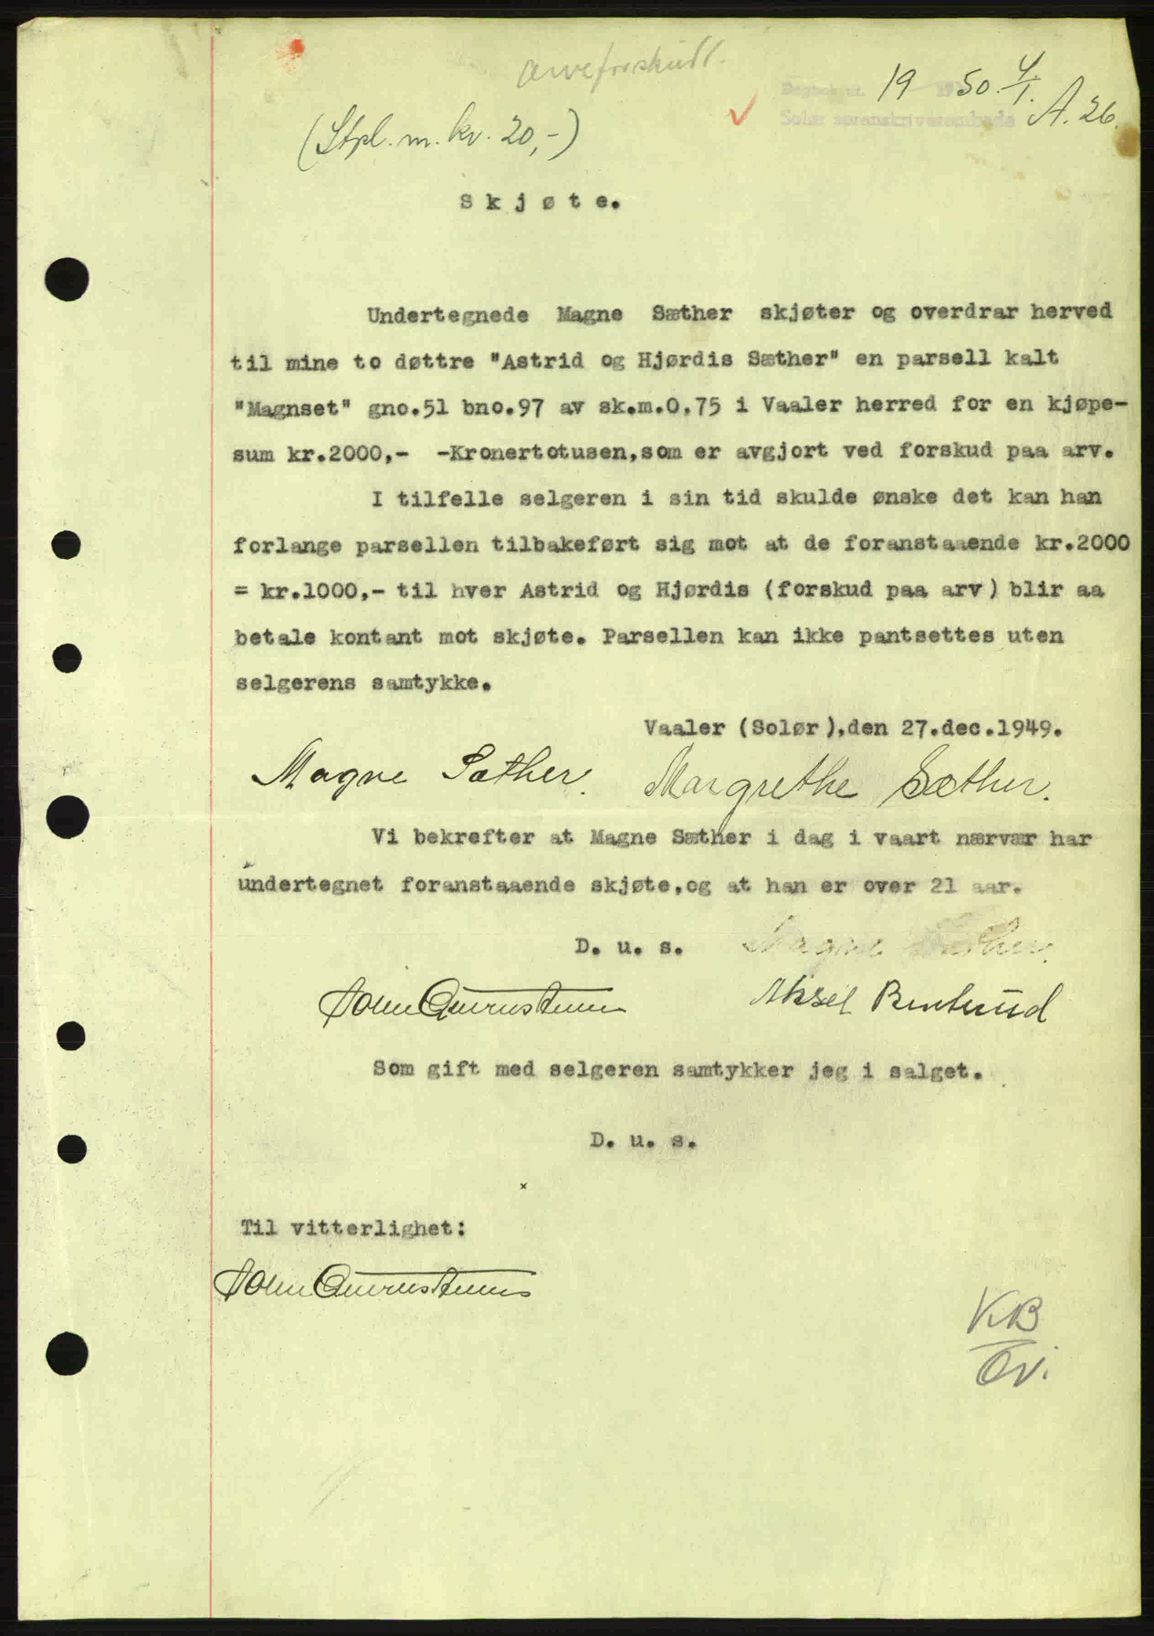 Arveforskudd.
Dagbok nr. 19 1950. 4/1.
Solør sorenskriverembede A. 26.
(Stpl. m. kr. 20,-)
Skjøte.
Undertegnede Magne Sæther skjøter og overdrar herved
til mine to døttre "Astrid og Hjørdis Sæther" en parsell kalt
"Magnset" gno.51 bno.97 av sk.m.0.75 i Vaaler herred for en kjøpe-
sum kr.2000,- -Kronertotusen,som er avgjort ved forskud paa arv.
I tilfelle selgeren i sin tid skulde ønske det kan han
forlange parsellen tilbakeført sig mot at de foranstaaende kr.2000
= kr.1000,- til hver Astrid og Hjørdis (forskud paa arv) blir aa
betale kontant mot skjøte. Parsellen kan ikke pantsettes uten
selgerens samtykke.
Vaaler (Solør),den 27.dec.1949.
Magne Sæther. Margrethe Sæther.
Vi bekrefter at Magne Sæther i dag i vaart nærvær har
undertegnet foranstaaende skjøte,og at han er over 21 aar.
D. u. s. Magne Sæther.
Aksel
Som gift med selgeren samtykker jeg i salget.
D. u. s.
Til vitterlighet:
KB